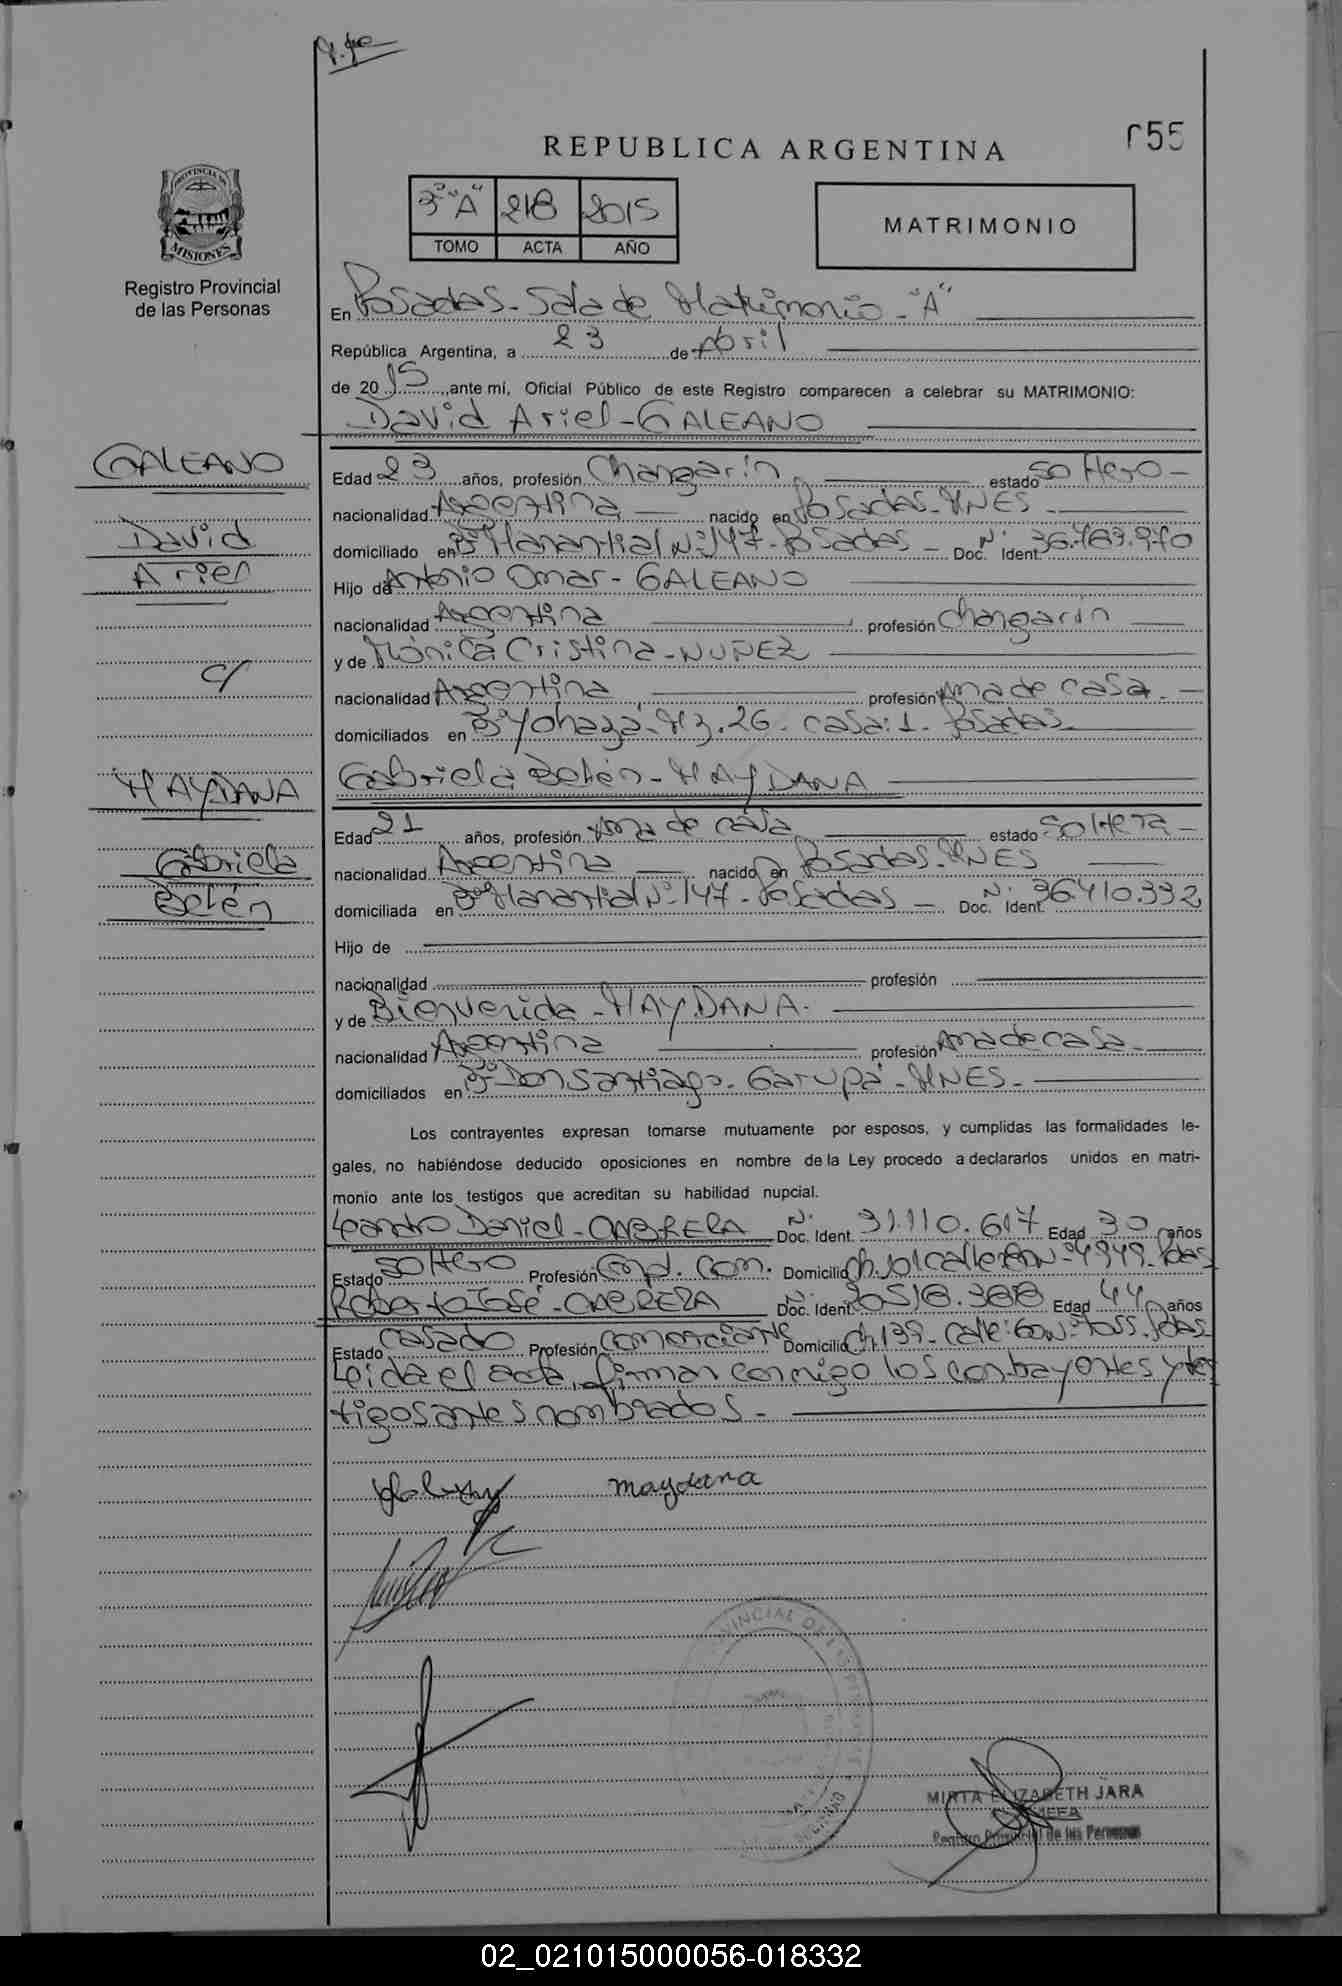 REPUBLICA ARGENTINA
55
PROVINCIA DE
MISIONES
Registro Provincial
de las Personas
3º "A" 218 2015
TOMO ACTA AÑO
MATRIMONIO
En Posadas - Sala de Matrimonio - "A"
República Argentina, a 23 de Abril
de 2015, ante mí, Oficial Público de este Registro comparecen a celebrar su MATRIMONIO:
David Ariel - GALEANO
GALEANO
David
Ariel
c/
MAYDANA
Gabriela
Belén
Edad 23 años, profesión Changarín estado soltero -
nacionalidad Argentina nacido en Posadas - MNES
domiciliado en Bº Manantial Nº 147 - Posadas - Doc. Nº Ident. 36.463.970
Hijo de Antonio Omar - GALEANO
nacionalidad Argentina profesión Changarín
y de Mónica Cristina - NUÑEZ
nacionalidad Argentina profesión Ama de casa. -
domiciliados en Bº Yohasá. Mz. 26 - casa: 1 - Posadas -
Gabriela Belén - MAYDANA
Edad 21 años, profesión Ama de casa estado soltera -
nacionalidad Argentina nacido en Posadas - MNES
domiciliada en Bº Manantial Nº 147 - Posadas - Doc. Nº Ident. 36.410.332
Hijo de
nacionalidad profesión
y de Bienvenida - MAYDANA -
nacionalidad Argentina profesión Ama de casa
domiciliados en Bº Don Santiago - Garupá - MNES -
Los contrayentes expresan tomarse mutuamente por esposos, y cumplidas las formalidades le-
gales, no habiéndose deducido oposiciones en nombre de la Ley procedo a declararlos unidos en matri-
monio ante los testigos que acreditan su habilidad nupcial.
Leandro Daniel - CABRERA Doc. Nº Ident. 31.110.617 Edad 30 años
Estado soltero Profesión Emp. Com. Domicilio Ch. 101 calle Nº 4949 - Pdas
Roberto José - CABRERA Doc. Nº Ident. 20518.388 Edad 44 años
Estado casado Profesión comerciante Domicilio Ch. 139 - Calle: 60 Nº Pdas
Leida el acta, firman conmigo los contrayentes y tes
tigos antes nombrados -
maydana
MIRTA ELIZABETH JARA
JEFA
Registro Provincial de las Personas
02_021015000056-018332